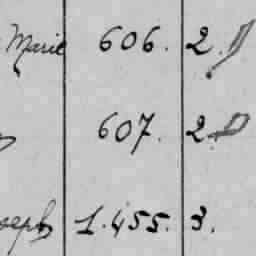 Marie 606. 2.
607. 2
seph 1.455. 3.